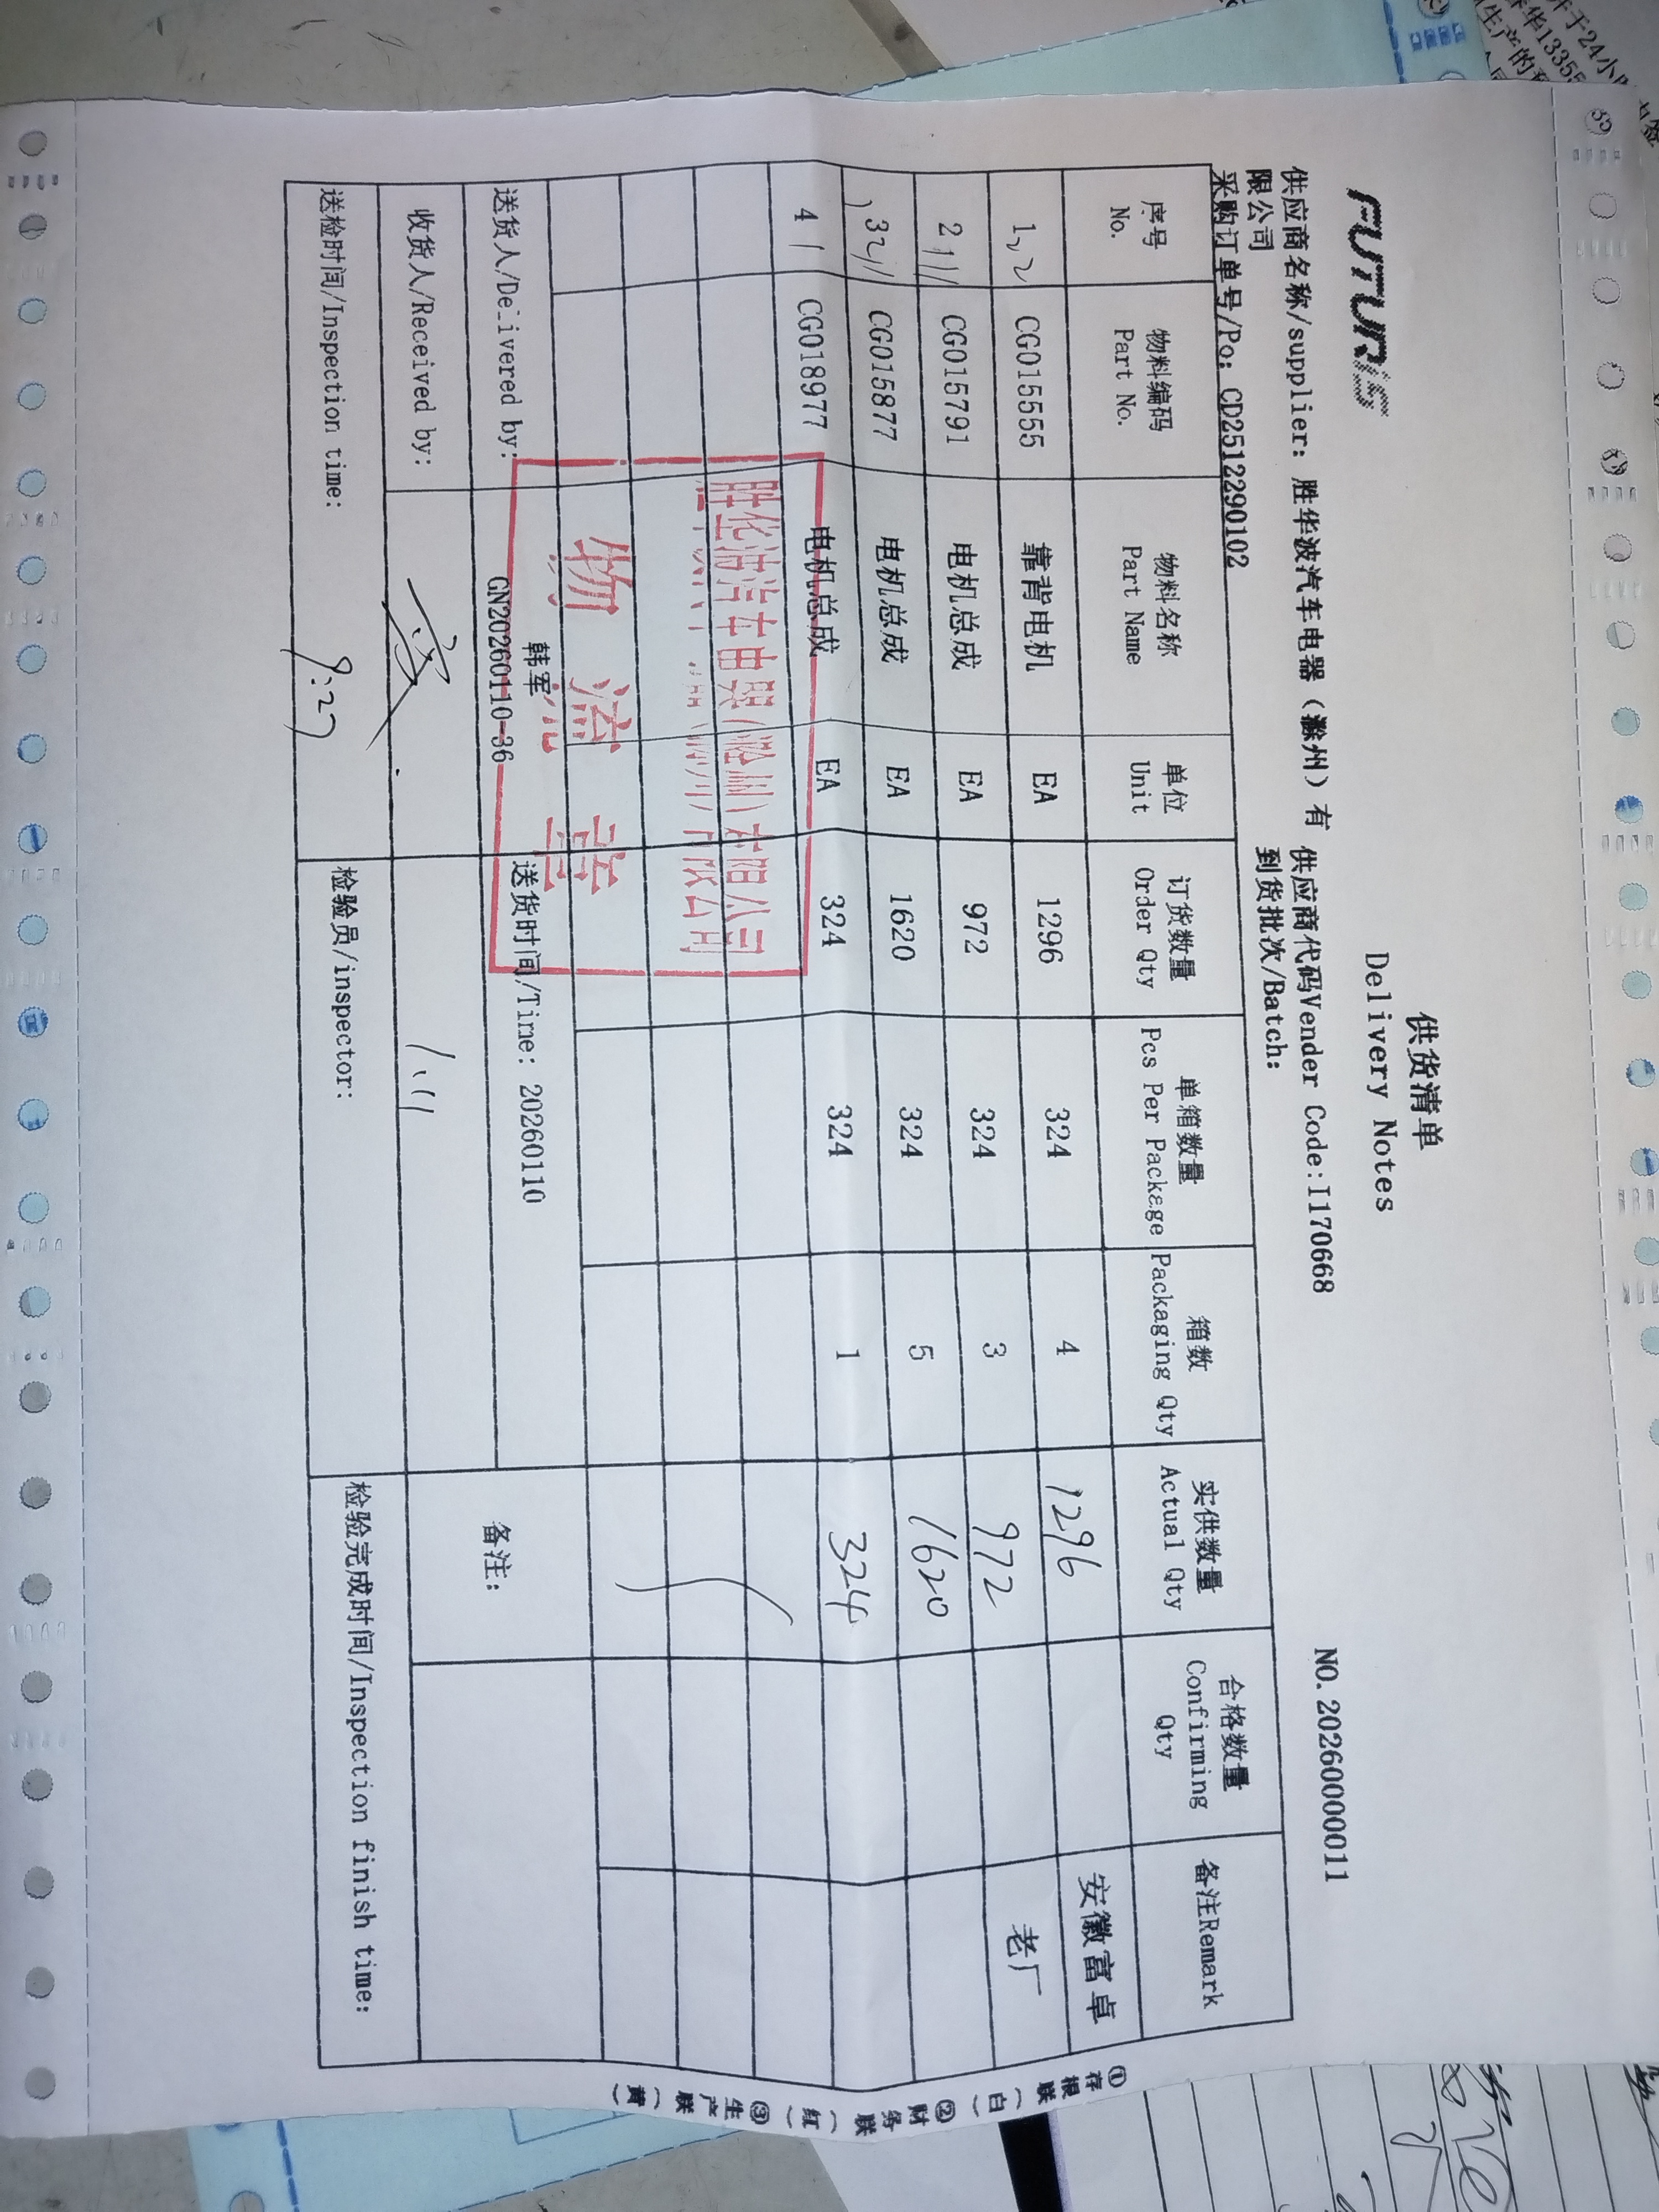 FUTURIS
供货清单
Delivery Notes
供应商名称/supplier: 胜华波汽车电器（滁州）有
限公司
供应商代码Vender Code:I170668
NO. 20260000011
采购订单号/Po: CD2512290102
到货批次/Batch:
序号 No. 物料编码 Part No. 物料名称 Part Name 单位 Unit 订货数量 Order Qty 单箱数量 Pcs Per Package 箱数 Packaging Qty 实供数量 Actual Qty 合格数量 Confirming Qty 备注Remark
1 CG015555 靠背电机 EA 1296 324 4 1296 安徽富卓
2 CG015791 电机总成 EA 972 324 3 972 老厂
3 CG015877 电机总成 EA 1620 324 5 1620
4 CG018977 电机总成 EA 324 324 1 324
胜华波汽车电器（滁州）有限公司
物流章
送货人/Delivered by: 韩军
GN20260110-36
送货时间/Time: 20260110
备注:
收货人/Received by: 1.11
送检时间/Inspection time: 9:27
检验员/inspector:
检验完成时间/Inspection finish time:
①存根联（白）②财务联（红）③生产联（黄）